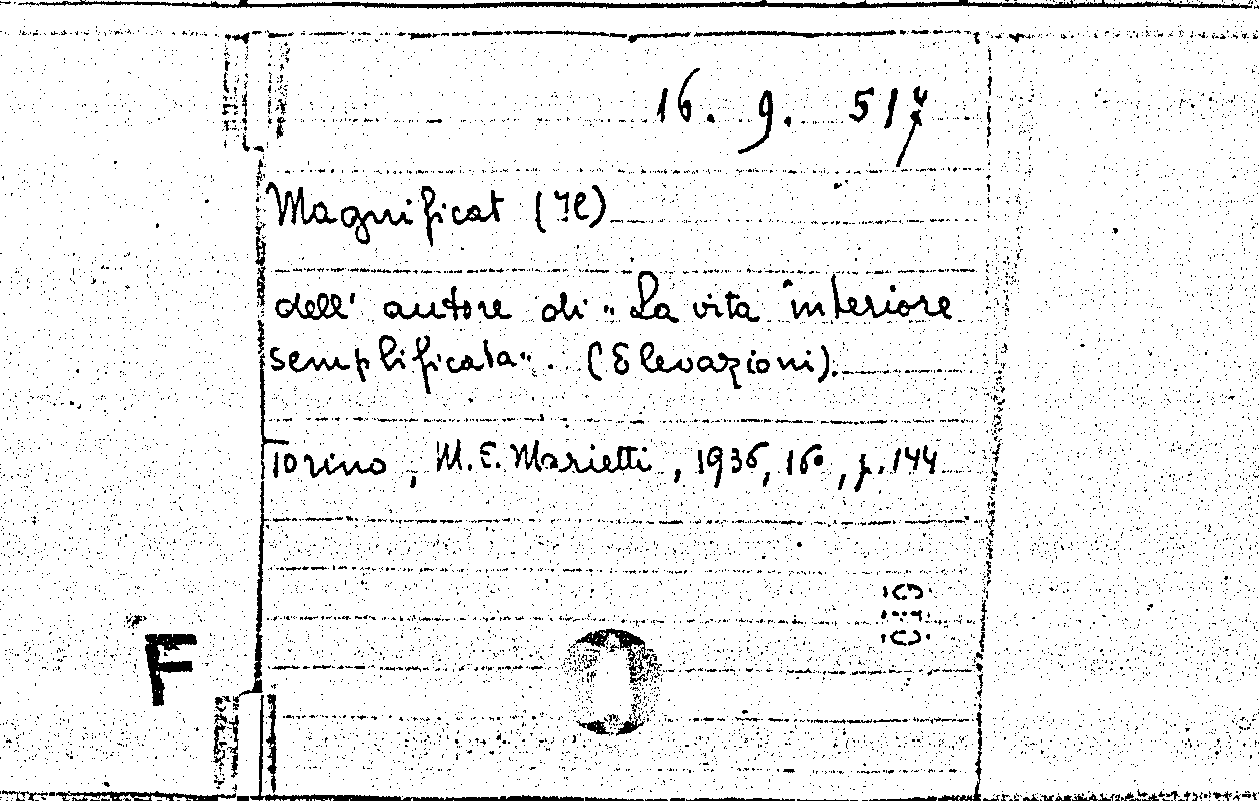 16. 9. 517
Magnificat (Il)
dell' autore di "La vita interiore
semplificata". (Elevazioni).
Torino, M.E. Marietti, 1936, 16°, p. 144
F